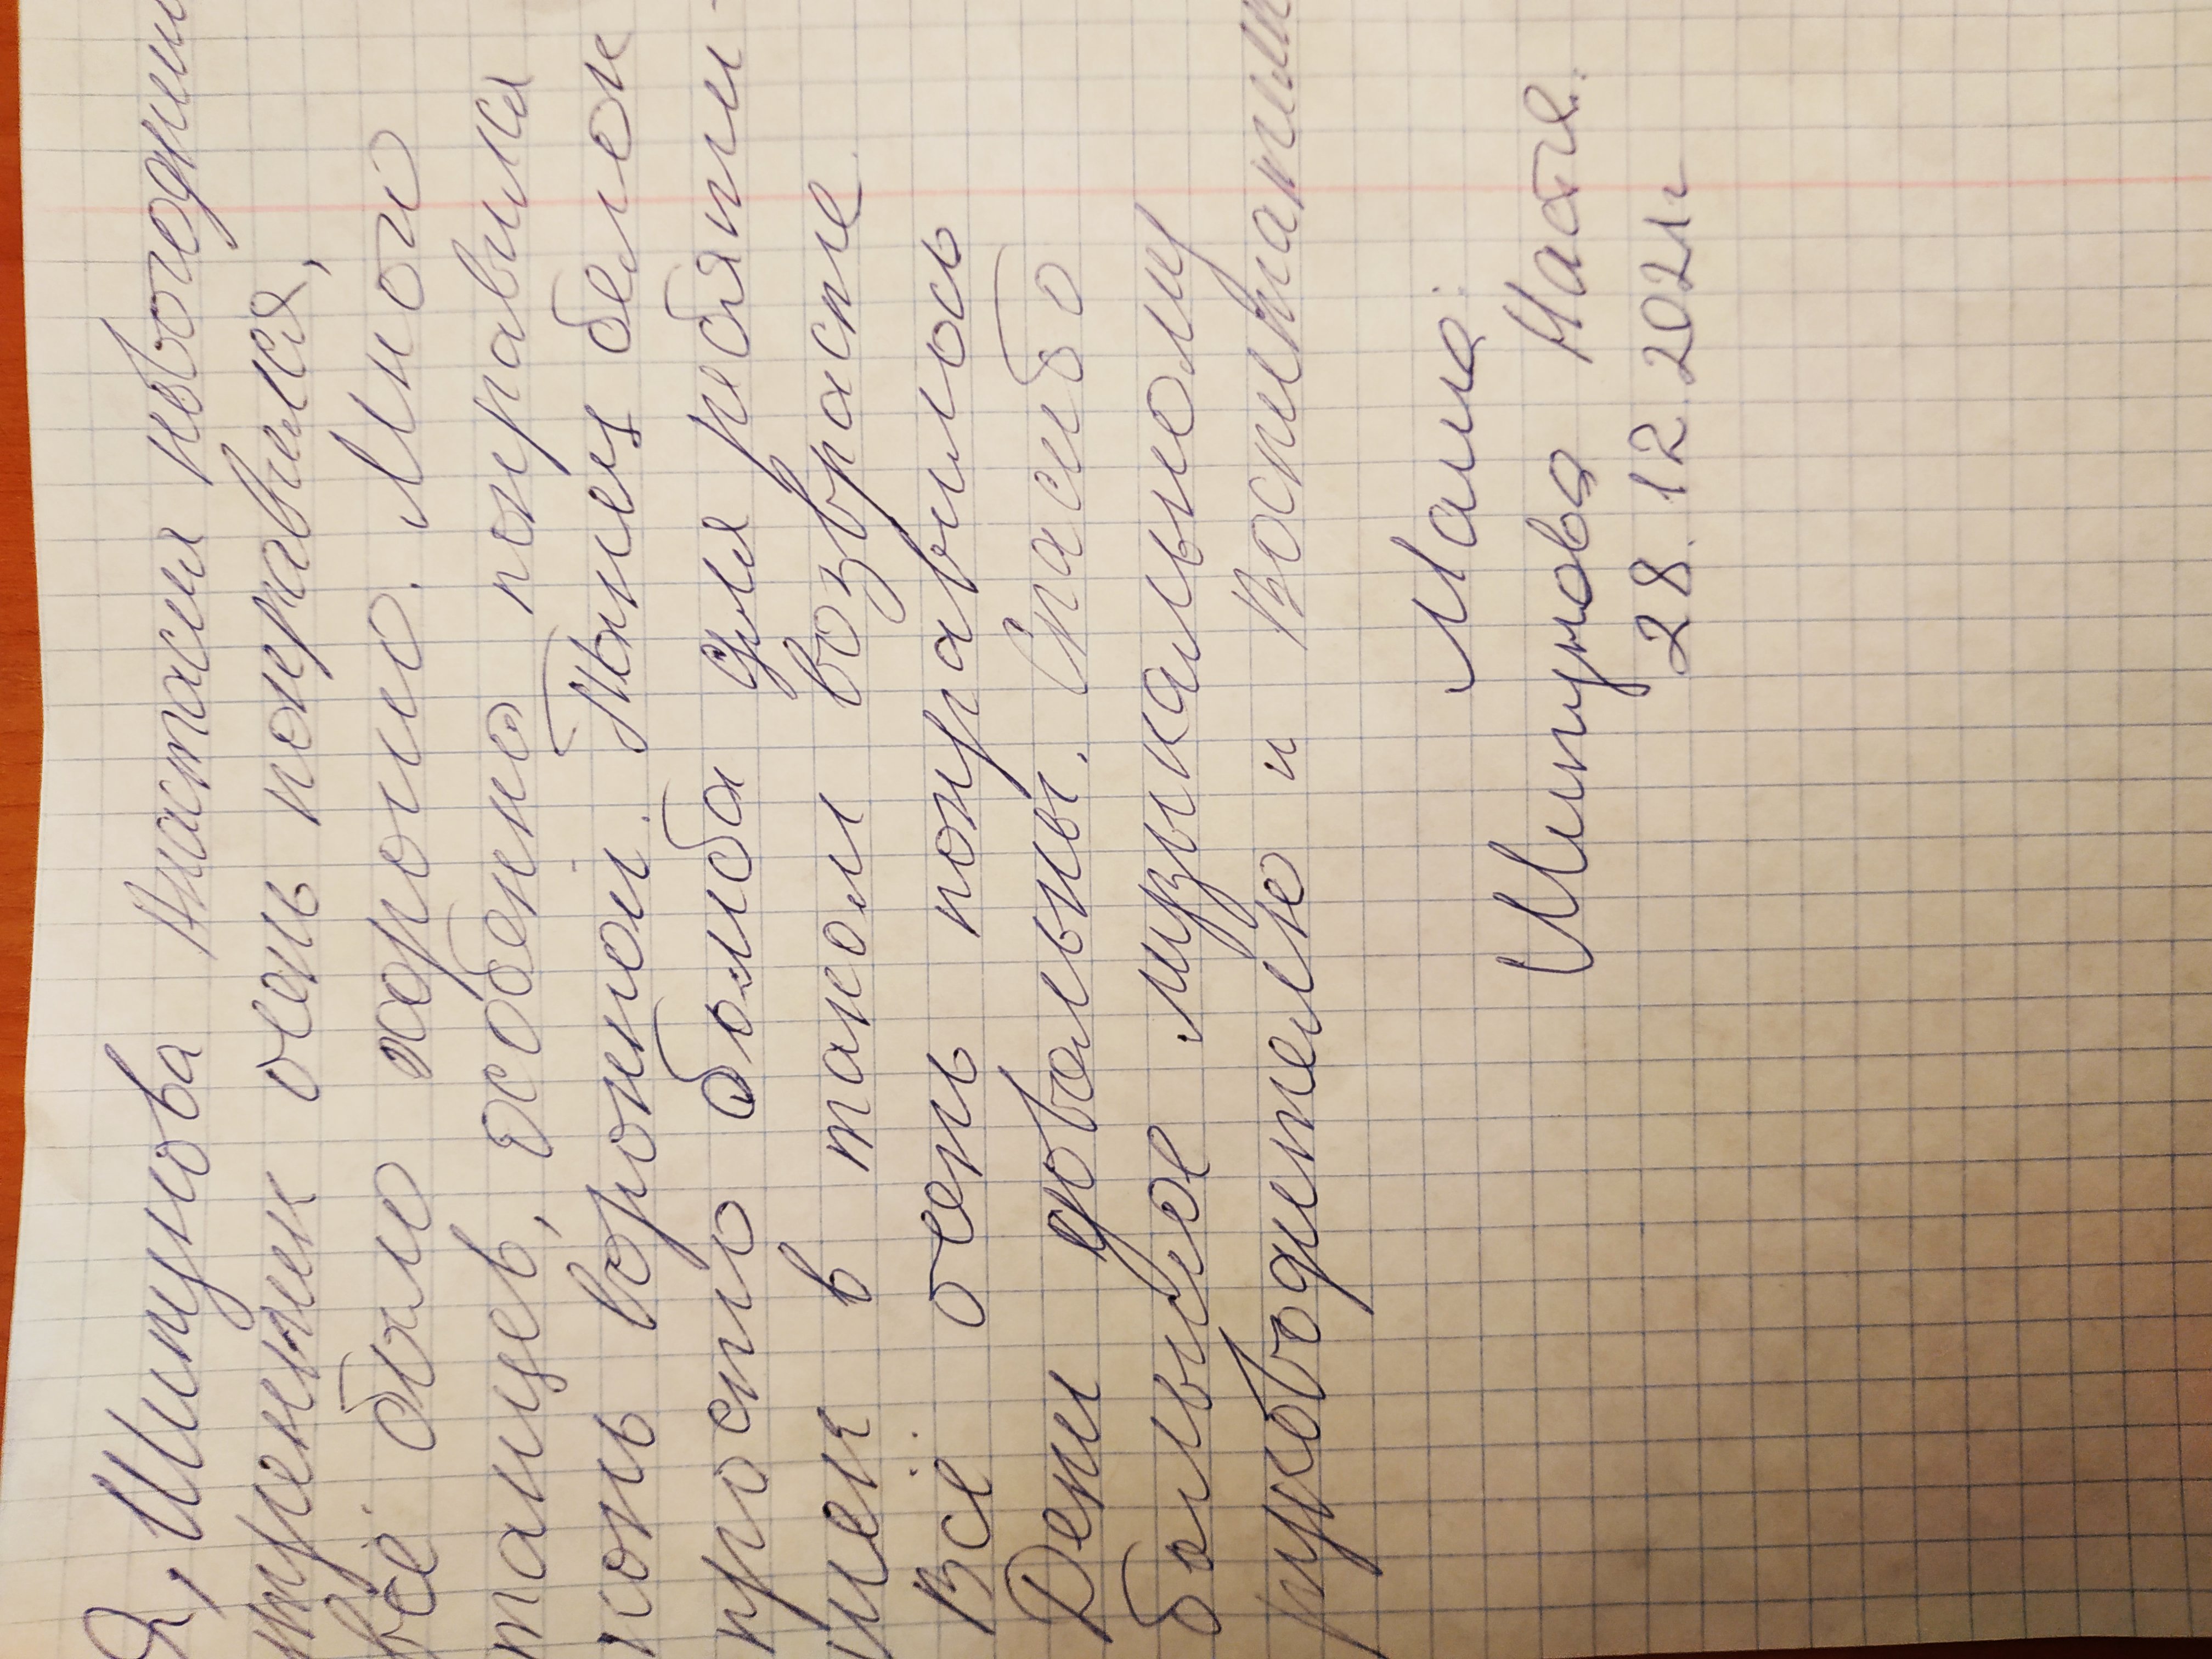 Я, Шипунова Анастасия новогодни
утренник очень понравился,
всё было хорошо. Много
танцев, особено понравился
конь вороной. Танец белок
просто бомба для ребяти-
шек в таком возврасте.
Всё очень понравилось
Дети довольны. Спасибо
большое музыкальному
руководителю и Воспитателям
Мама:
Шипунова Настя.
28.12.2021г